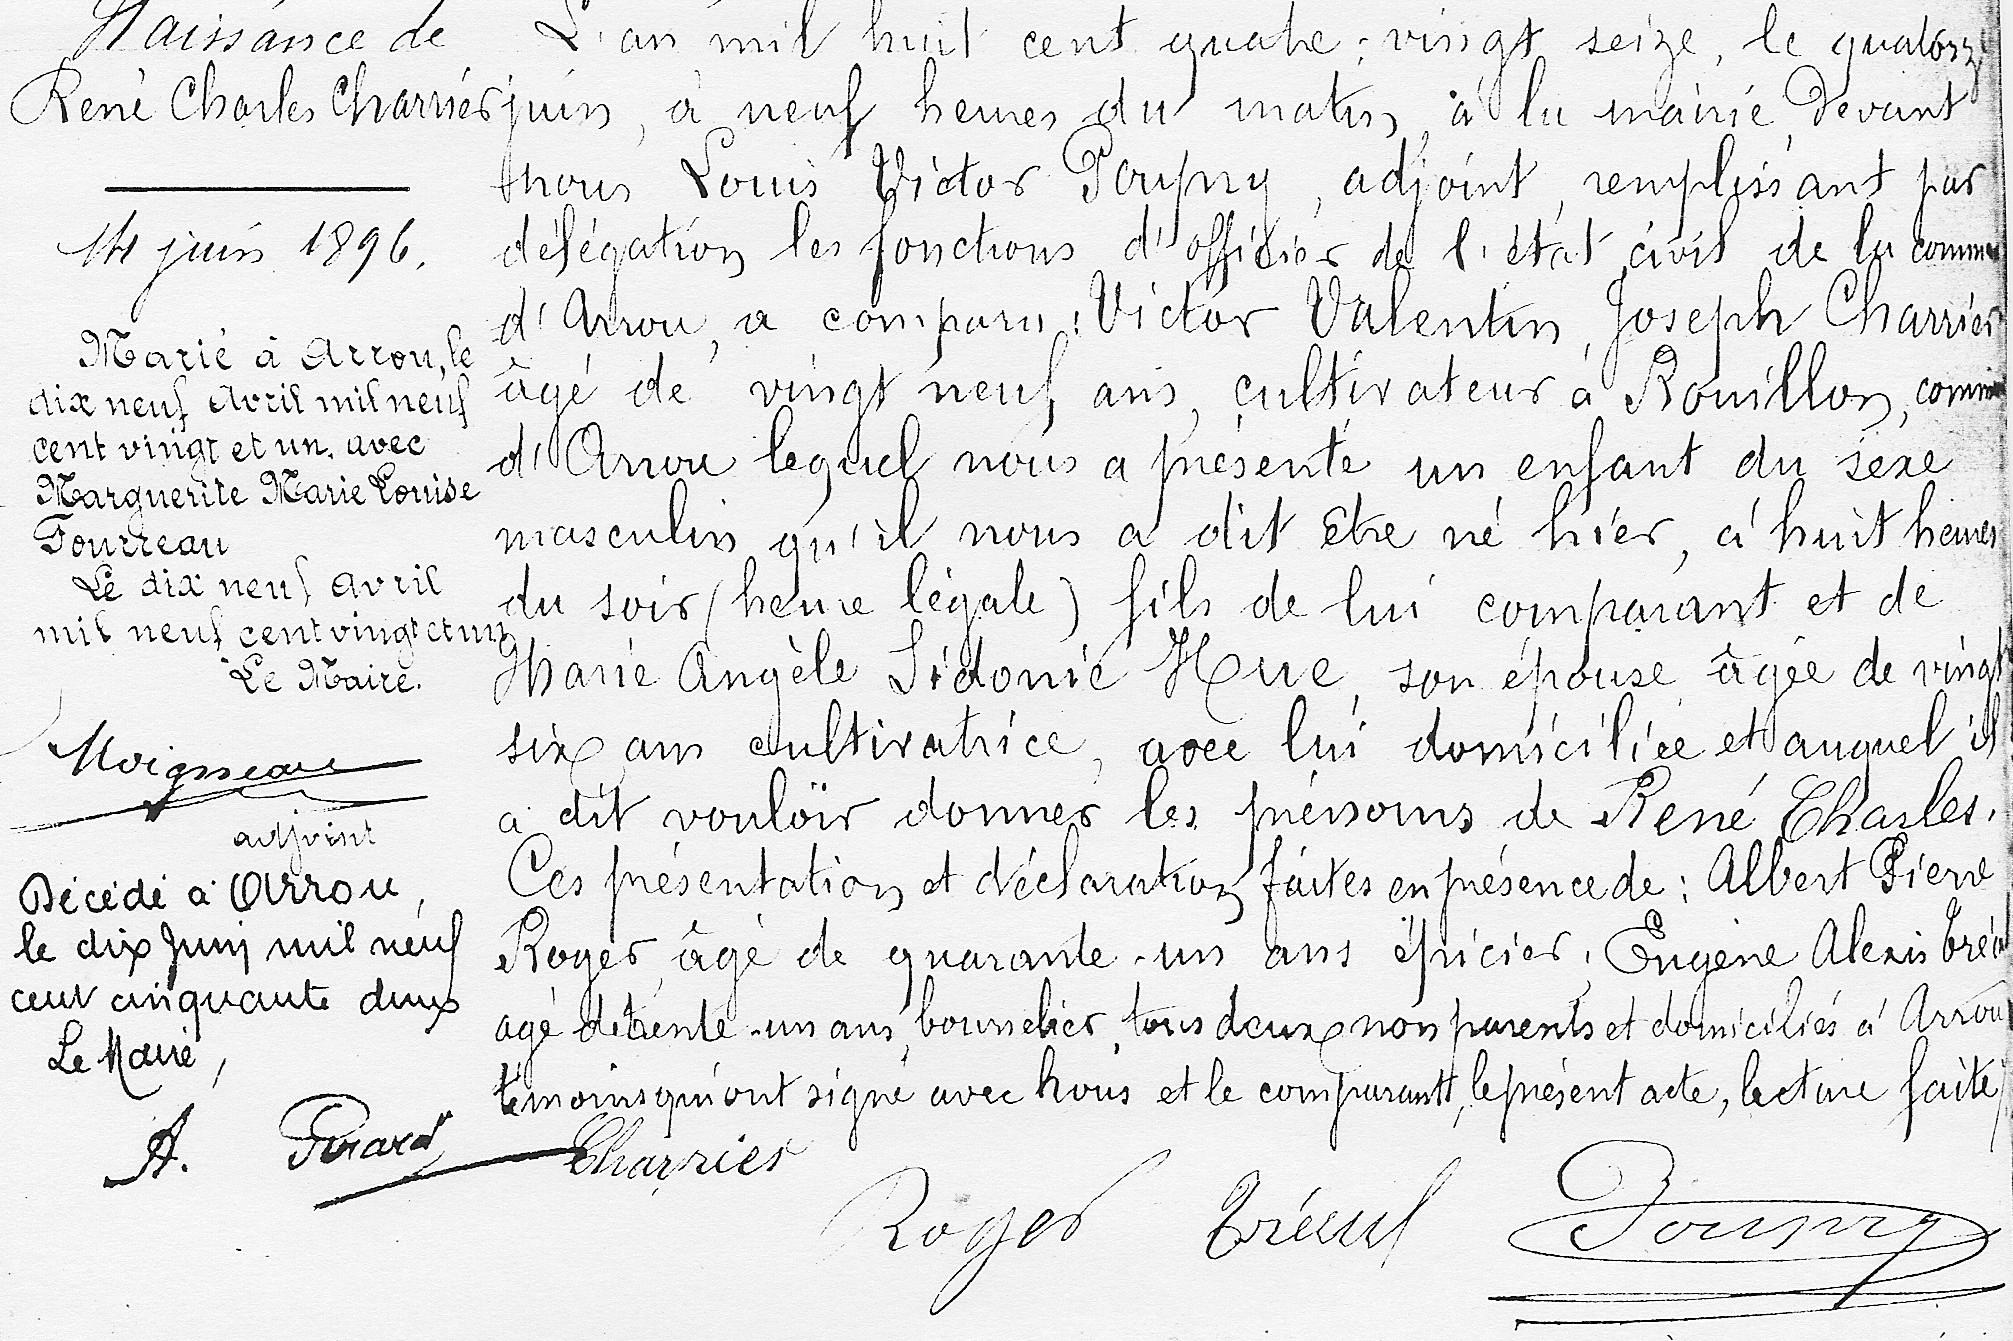 Naissance de
René Charles Charrier
14 juin 1896.
Marié à Arrou, le
dix neuf Avril mil neuf
cent vingt et un, avec
Marguerite Marie Louise
Fourreau
Le dix neuf avril
mil neuf cent vingt et un
Le Maire.
Moigneau
adjoint
Décédé à Arrou,
le dix Juin mil neuf
cent cinquante deux
Le Maire,
A. Girard
L'an mil huit cent quatre-vingt seize, le quatorz
juin, à neuf heures du matin, à la mairie, devant
nous Louis Victor Poupry, adjoint, remplissant par
délégation les fonctions d'officier de l'état civil de la comm
d'Arrou, a comparu : Victor Valentin Joseph Charrier
âgé de vingt neuf ans, cultivateur à Rouillon, comm
d'Arrou lequel nous a présenté un enfant du sexe
masculin qu'il nous a dit être né hier, à huit heures
du soir (heure légale) fils de lui comparant et de
Marie Angèle Sidonie Hue, son épouse, âgée de vingt
six ans cultivatrice, avec lui domiciliée et auquel il
a dit vouloir donner les prénoms de René Charles.
Ces présentation et déclaration faites en présence de : Albert Pierre
Roger, âgé de quarante-un ans épicier, Eugène Alexis
agé de trente-un ans, bourrelier, tous deux non parents et domiciliés à Arrou
témoins qui ont signé avec nous et le comparant, le présent acte, lecture faite
Charrier
Roger Poupry